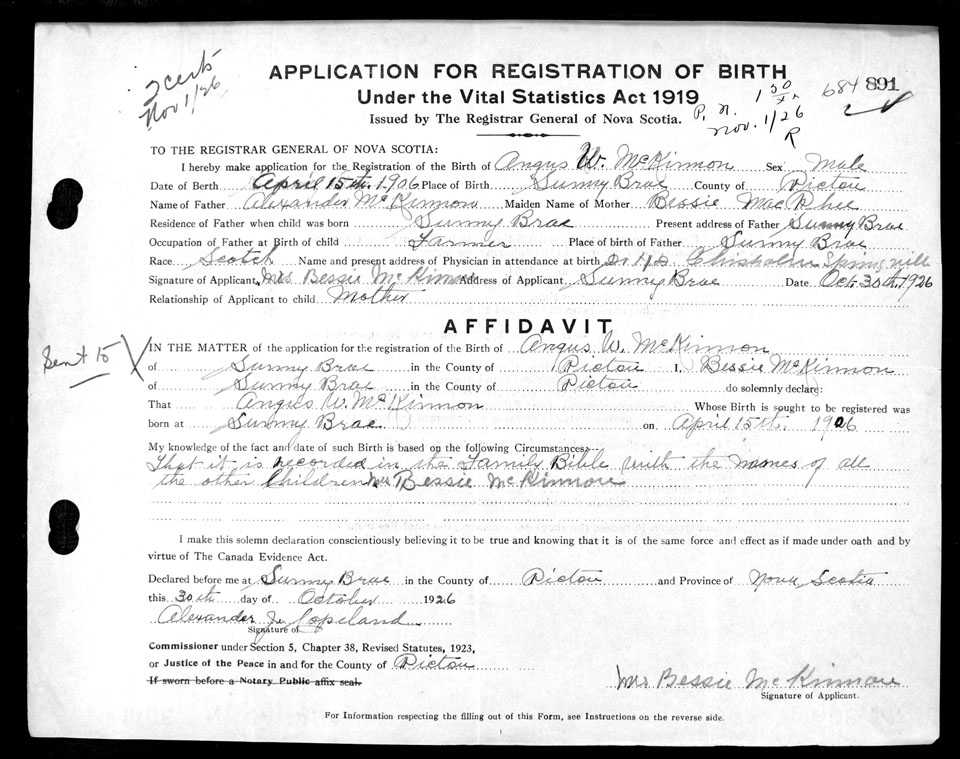 2 certs
Nov 1/26
APPLICATION FOR REGISTRATION OF BIRTH
Under the Vital Statistics Act 1919
Issued by The Registrar General of Nova Scotia.
1 50
P. N.
Nov. 1/26
R
684 891
TO THE REGISTRAR GENERAL OF NOVA SCOTIA:
I hereby make application for the Registration of the Birth of Angus W. McKinnon Sex Male
Date of Birth April 15th. 1906 Place of Birth Sunny Brae County of Pictou
Name of Father Alexander McKinnon Maiden Name of Mother Bessie MacPhee
Residence of Father when child was born Sunny Brae Present address of Father Sunny Brae
Occupation of Father at Birth of child Farmer Place of birth of Father Sunny Brae
Race Scotch Name and present address of Physician in attendance at birth Chisholm Springville
Signature of Applicant, Mrs Bessie McKinnon Address of Applicant Sunny Brae Date Oct. 30th. 1926
Relationship of Applicant to child Mother
AFFIDAVIT
Sent to
IN THE MATTER of the application for the registration of the Birth of Angus W. McKinnon
of Sunny Brae in the County of Pictou I, Bessie McKinnon
of Sunny Brae in the County of Pictou do solemnly declare:
That Angus W. McKinnon Whose Birth is sought to be registered was
born at Sunny Brae on April 15th. 1906
My knowledge of the fact and date of such Birth is based on the following Circumstances:—
That it is recorded in the Family Bible with the names of all
the other Children Mrs Bessie McKinnon
I make this solemn declaration conscientiously believing it to be true and knowing that it is of the same force and effect as if made under oath and by
virtue of The Canada Evidence Act.
Declared before me at Sunny Brae in the County of Pictou and Province of Nova Scotia
this 30th day of October 1926
Alexander J. Copeland
Signature of
Commissioner under Section 5, Chapter 38, Revised Statutes, 1923,
or Justice of the Peace in and for the County of Pictou
If sworn before a Notary Public affix seal.
Mrs Bessie McKinnon
Signature of Applicant.
For Information respecting the filling out of this Form, see Instructions on the reverse side.